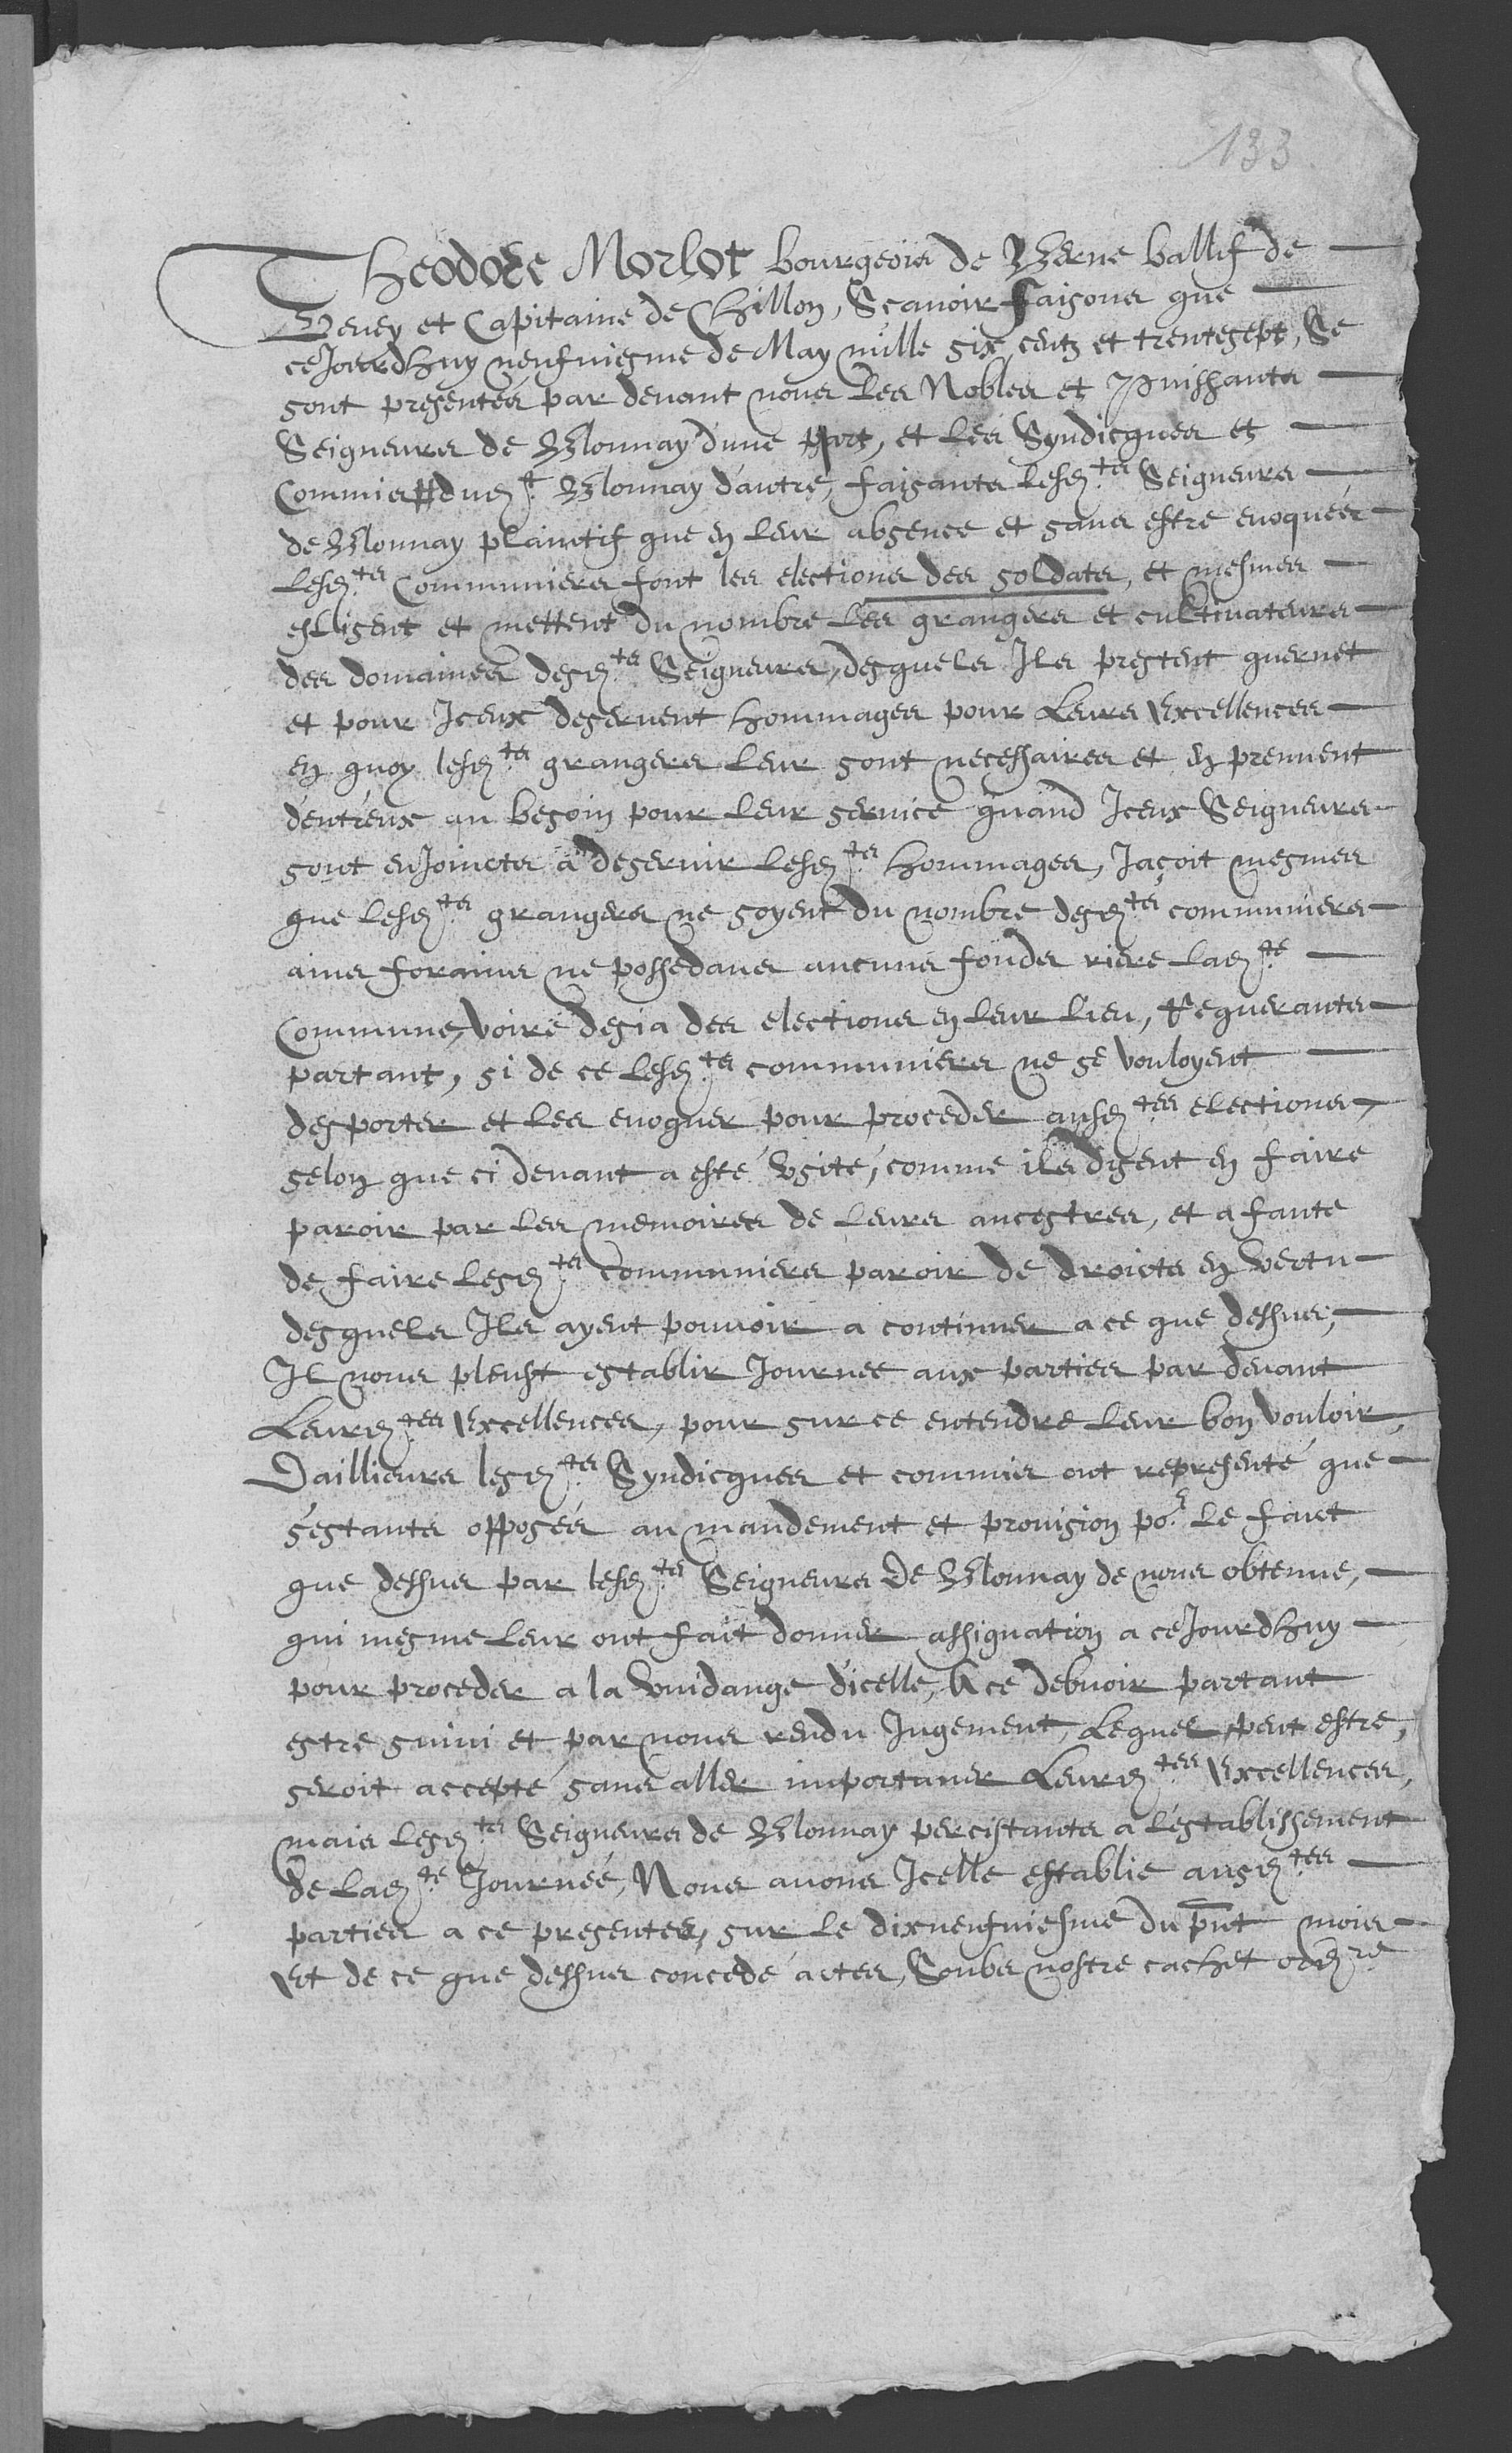 133
Theodore Morlot bourgeois de Berne ballif de
Vevey et Capitaine de Chillon, Scavoir faisons que
ceJourdhuy neufviesme de May mille six centz et trentesept, Se
sont presentés par devant nous les Nobles et Puissants
Seigneurs de Blonnay d'une part, et les Syndicques et
Commis dud.t Blonnay d'autre, faisants lesd.ts Seigneurs
de Blonnay plaintif que en leur absence et sans estre evoqués
lesd.ts Communiers font les elections des soldats, et mesmes
eslisent et mettent du nombre les grangers et cultivateurs
des domaines desd.ts Seigneurs, desquels Ils prestent quernet
et pour Iceux deservent hommages pour Leurs Excellences
en quoy lesd.ts grangers leur sont necessaires et en prennent
d'entreux au besoin pour leur service quand Iceux Seigneurs
sont enJoincts a deservir lesd.ts hommages, Jaçoit mesmes
que lesd.ts grangers ne soyent du nombre desd.ts communiers
ains forains ne possedans aucuns fonds riere lad.te
Commune, voire desja des elections en leur lieu, Requerants
partant, si de ce lesd.ts communiers ne se vouloyent
desporter et les evoquer pour proceder ausd.tes elections,
selon que ci devant a esté usité, comme ils disent en faire
paroir par les memoires de leurs ancestres, et a faute
de faire lesd.ts communiers paroir de droicts en vertu
desquels Ils ayent pouvoir a continuer a ce que dessus,
Il nous pleust establir Journee aux parties par devant
Leursd.tes Excellences, pour sur ce entendre leur bon vouloir,
Daillieurs lesd.ts Syndicques et commis ont representé que
s'estants opposés au mandement et provision po.r le faict
que dessus par lesd.ts Seigneurs de Blonnay de nous obtenue,
qui mesme leur ont fait donner assignation a ceJourdhuy
pour proceder a la vuidange d'icelle, A ce debvoir partant
estre suivi et par nous rendu Jugement, Lequel peut estre,
seroit accepté sans aller importuner Leursd.tes Excellences,
mais lesd.ts Seigneurs de Blonnay percistants a l'establissement
de lad.te Journée, Nous avons Icelle establie ausd.tes
parties a ce presentes, sur le dixneufviesme du pnt mois
Et de ce que dessus concedé actes, Soubs nostre cachet ord.re